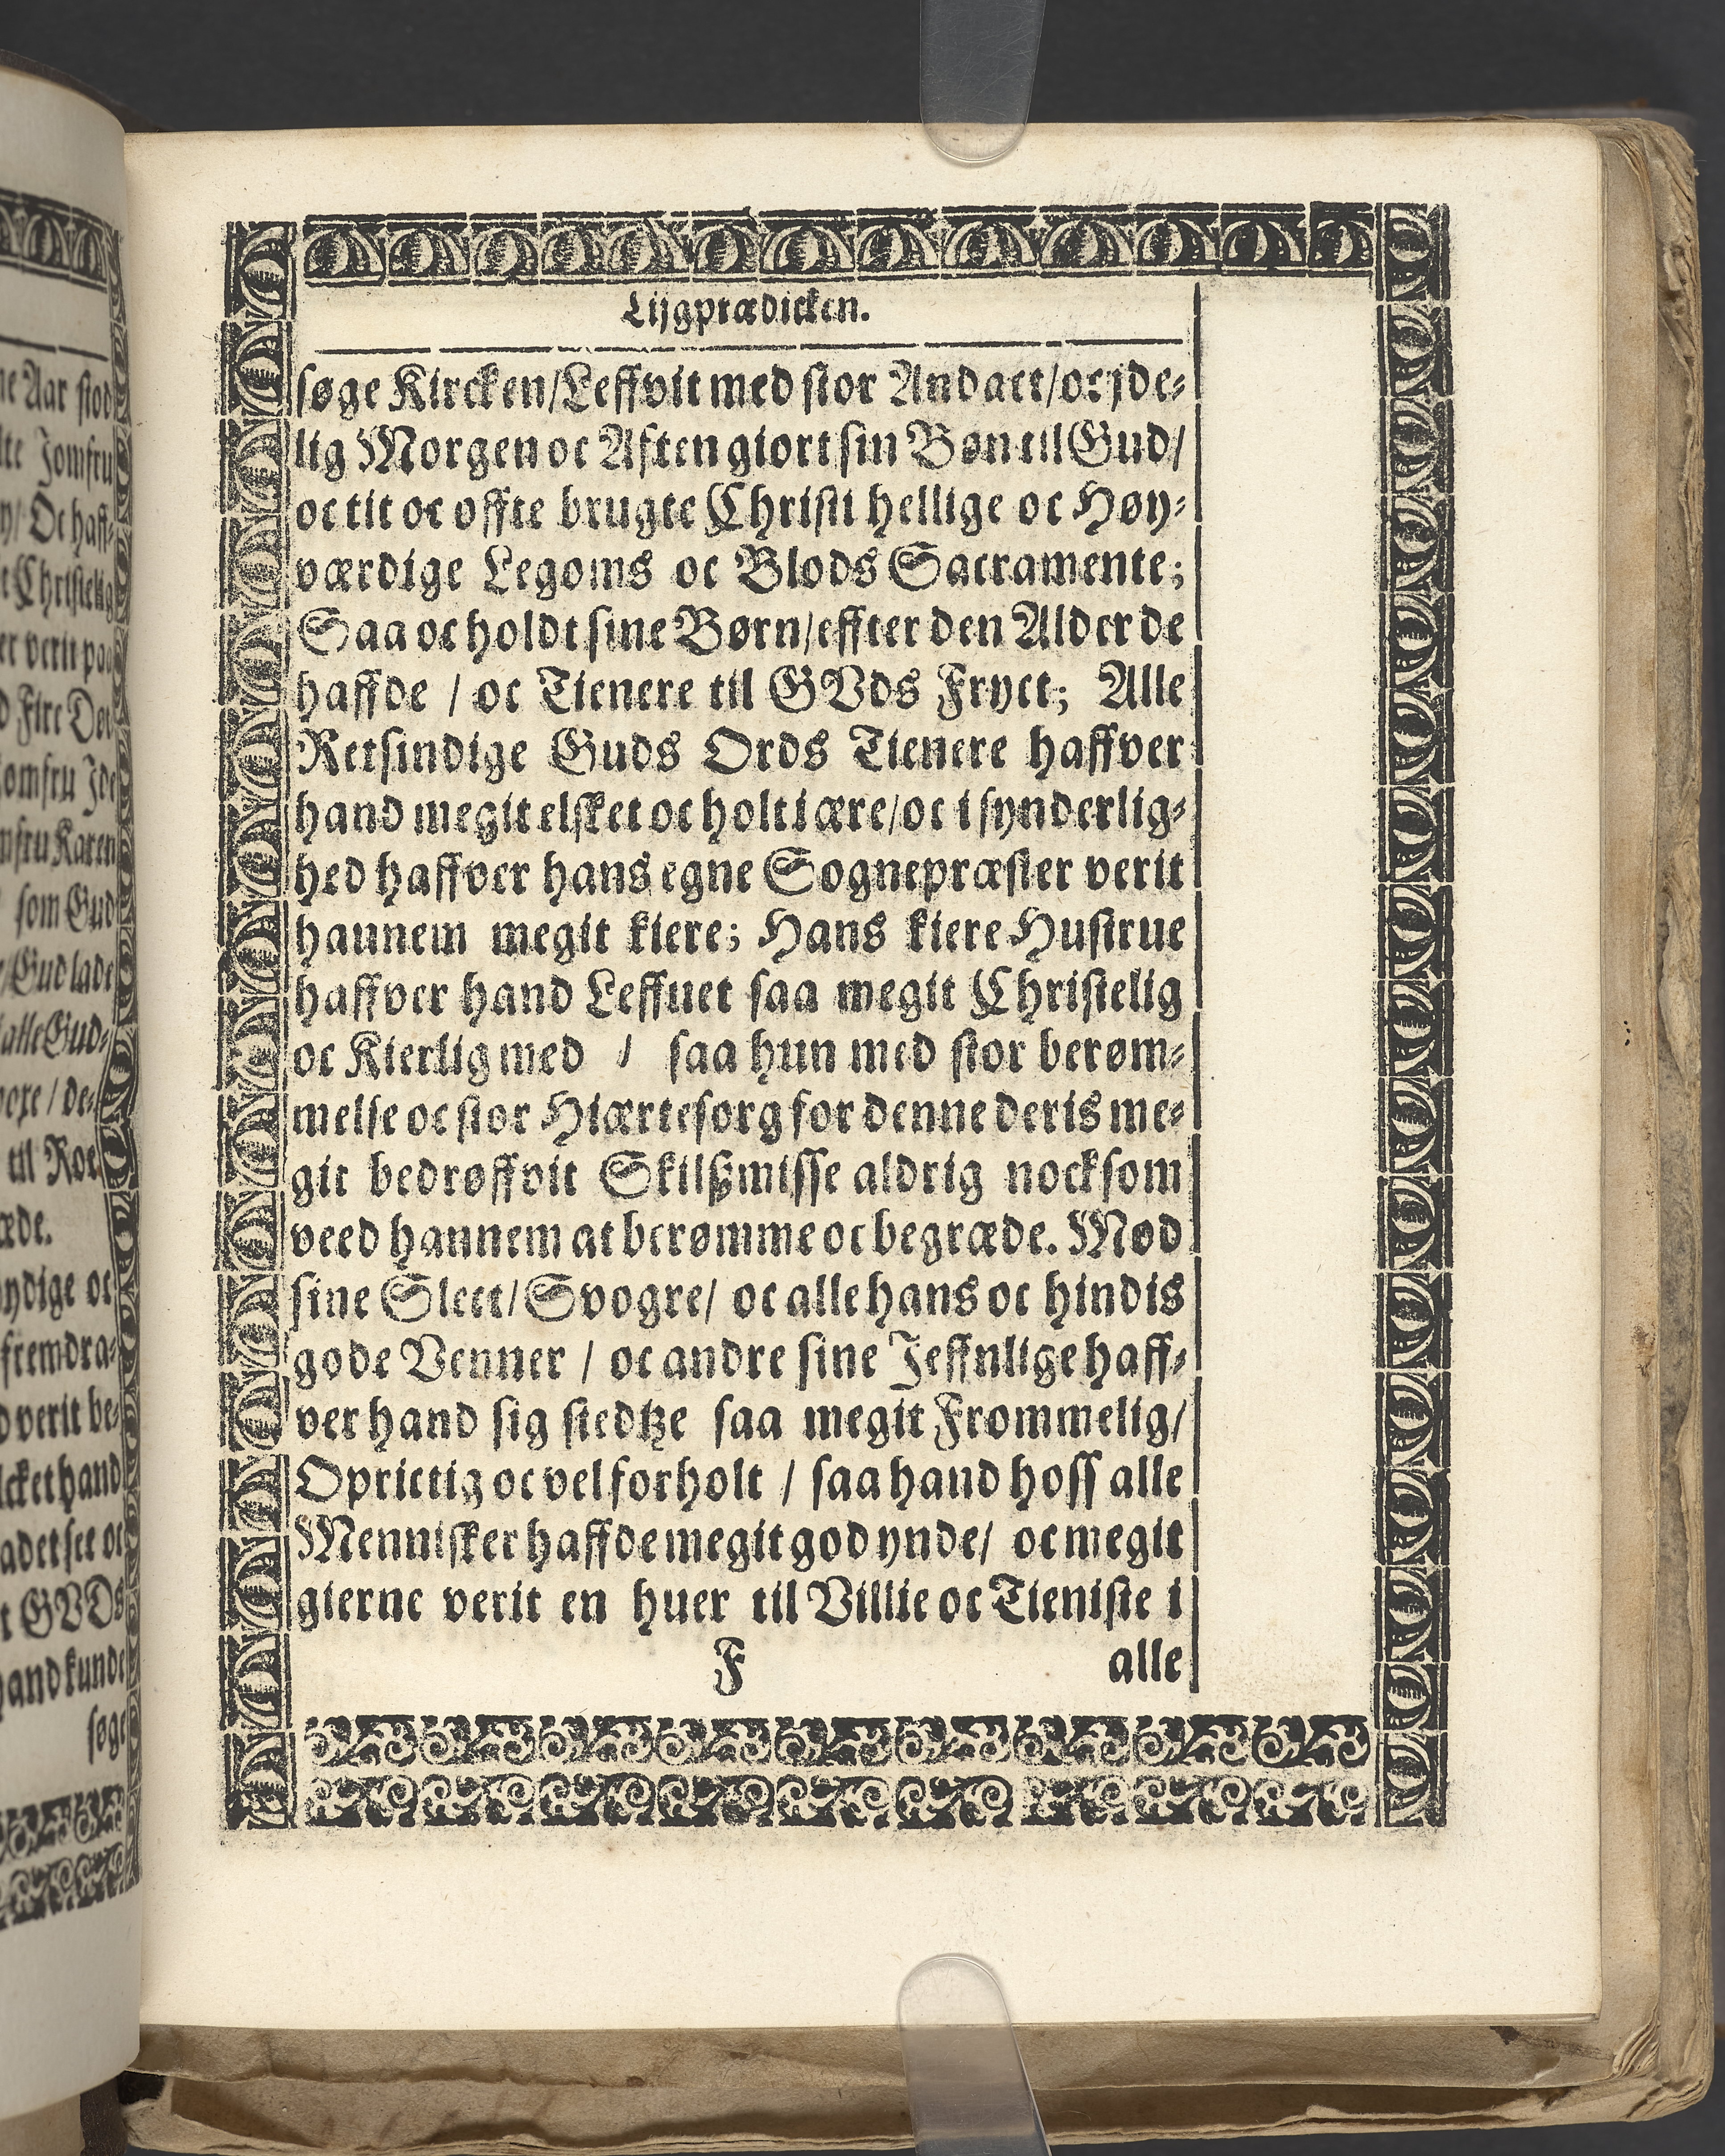 Lijgprædicken.
søge Kircken/Leffvit med stor Andact/oc jde-
lig Morgen oc Aften giort sin Bøn til Gud/
oc tit oc offte brugte Christi hellige oc Høy-
værdige Legoms oc Blods Sacramente;
Saa oc holdt sine Børn/effter den Alder de
haffde / oc Tienere til GVds Fryct; Alle
Retsindige Guds Ords Tienere haffver
hand megit elsket oc holt i ære/oc i synderlig-
hed haffver hans egne Sognepræster verit
hannem megit kiere; Hans kiere Hustrue
haffver hand Leffuet saa megit Christelig
oc Kierlig med / saa hun med stor berøm-
melse oc stor Hiærtesorg for denne deris me-
git bedrøffvit Skilßmisse aldrig nocksom
veed hannem at berømme oc begræde. Mod
sine Slect/Svogre/ oc alle hans oc hindis
gode Venner / oc andre sine Jeffnlige haff-
ver hand sig stedtze saa megit Frommelig/
Oprictig oc vel forholt / saa hand hoss alle
Mennisker haffde megit god ynde/ oc megit
gierne verit en huer til Villie oc Tieniste i
F alle
ne Aar stod
lte Jomfru
Oc haff-
t Christelig
er verit paa
d Fire Det
omfru Jde
mfru Karen
som Gud
/Gud lade
alle Gud-
voxe / de-
til Roe
æde.
ydige oc
fremdra-
d verit be-
lcket hand
adet see oc
t GVDs
hand kunde
søge